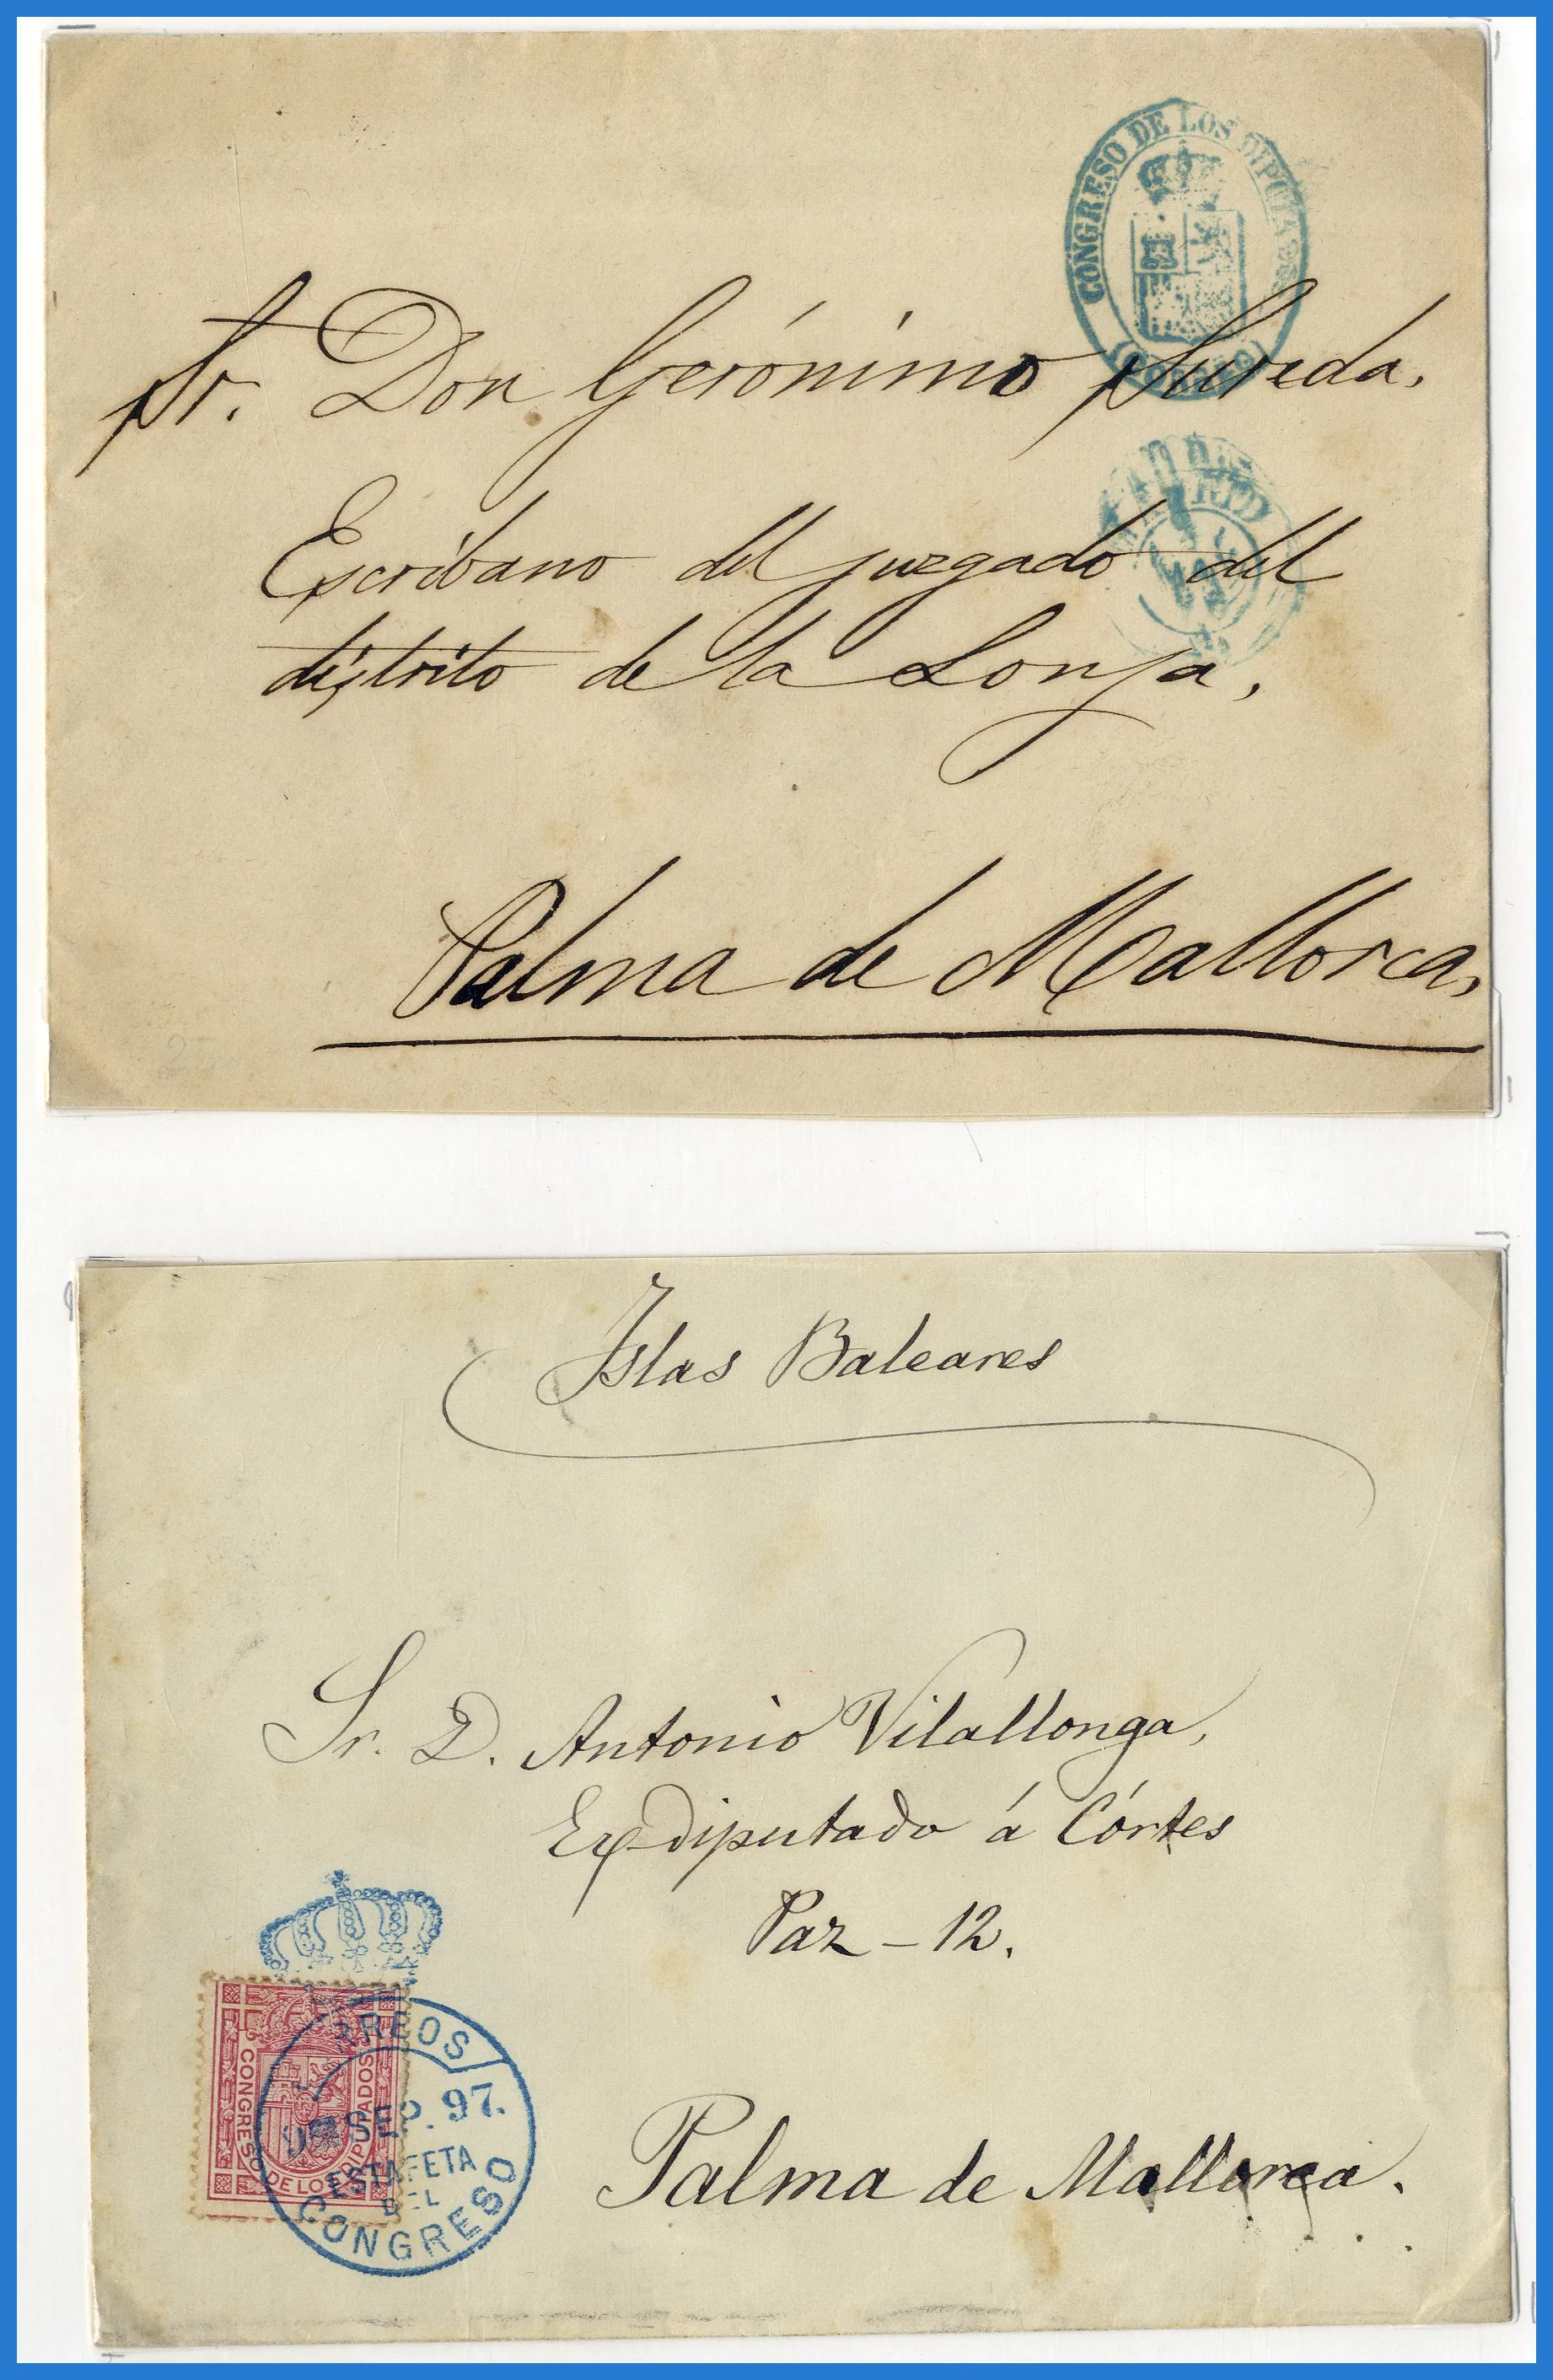 CONGRESO DE LOS DIPUTADOS
Sr. Don Gerónimo Sureda,
Escribano del juzgado del
distrito de la Lonja,
Palma de Mallorca,
Islas Baleares
Sr. D. Antonio Vilallonga,
Ex-diputado á Córtes
Paz - 12.
Palma de Mallorca.
CONGRESO DE LOS DIPUTADOS
SEP. 97.
ESTAFETA
DEL
CONGRESO